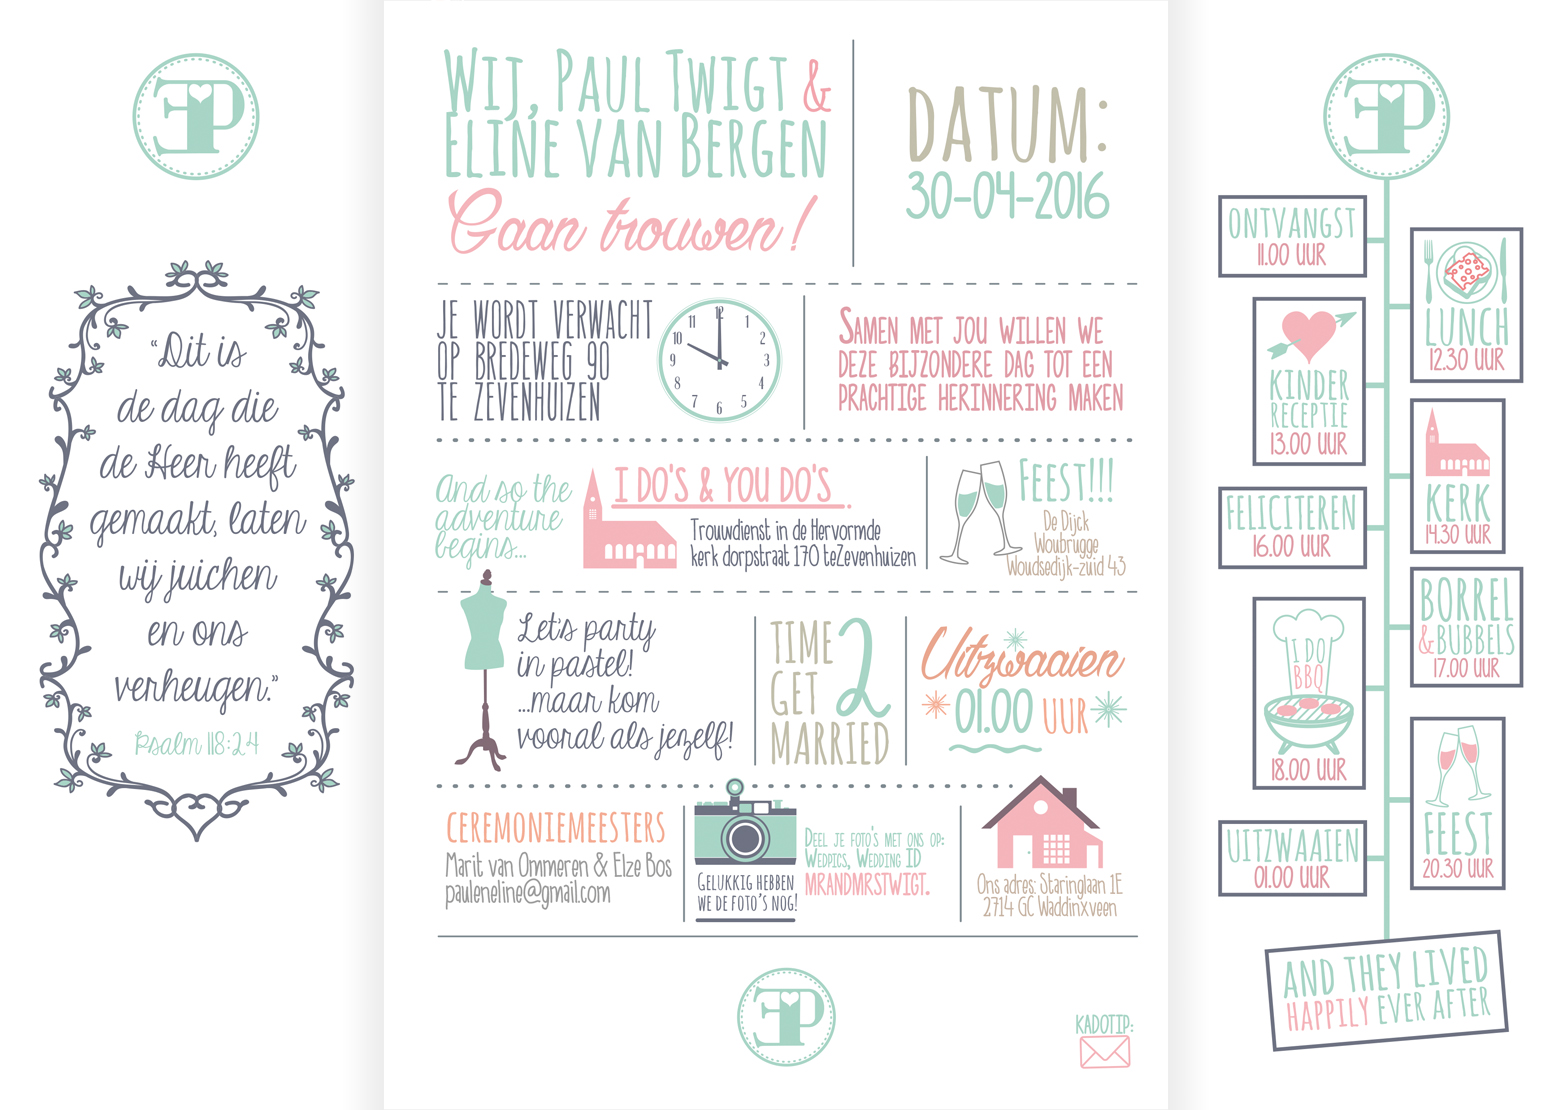 EP
“Dit is
de dag die
de Heer heeft
gemaakt, laten
wij juichen
en ons
verheugen.”
Psalm 118:24
Wij, Paul Twigt &
Eline van Bergen
Gaan trouwen!
DATUM:
30-04-2016
JE WORDT VERWACHT
OP BREDEWEG 90
TE ZEVENHUIZEN
12
1
2
3
4
5
6
7
8
9
10
11
SAMEN MET JOU WILLEN WE
DEZE BIJZONDERE DAG TOT EEN
PRACHTIGE HERINNERING MAKEN
And so the
adventure
begins...
I DO'S & YOU DO'S
Trouwdienst in de Hervormde
kerk dorpstraat 170 teZevenhuizen
FEEST!!!
De Dijck
Woubrugge
Woudsedijk-zuid 43
Let's party
in pastel!
...maar kom
vooral als jezelf!
TIME
GET 2
MARRIED
Uitzwaaien
01.00 UUR
CEREMONIEMEESTERS
Marit van Ommeren & Elze Bos
pauleneline@gmail.com
GELUKKIG HEBBEN
WE DE FOTO'S NOG!
DEEL JE FOTO'S MET ONS OP:
WEDPICS, WEDDING ID
MRANDMRSTWIGT.
Ons adres: Staringlaan 1E
2714 GC Waddinxveen
EP
KADOTIP:
EP
ONTVANGST
11.00 UUR
LUNCH
12.30 UUR
KINDER
RECEPTIE
13.00 UUR
KERK
14.30 UUR
FELICITEREN
16.00 UUR
BORREL
& BUBBELS
17.00 UUR
I DO
BBQ
18.00 UUR
FEEST
20.30 UUR
UITZWAAIEN
01.00 UUR
AND THEY LIVED
HAPPILY EVER AFTER